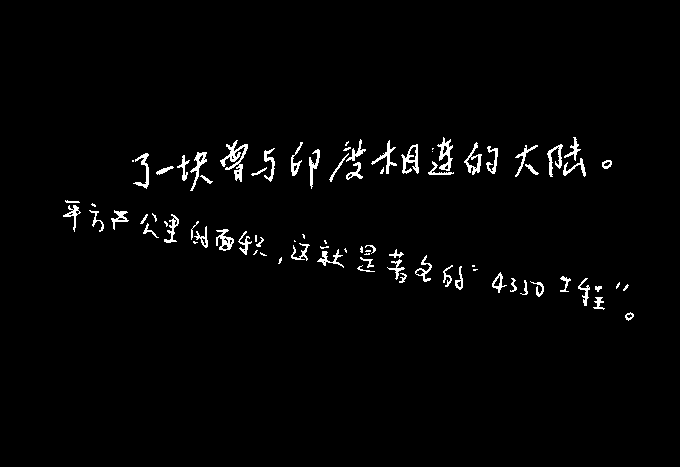 了一块曾与印度相连的大陆。
平方公里的面积,这就是著名的“4350工程”。